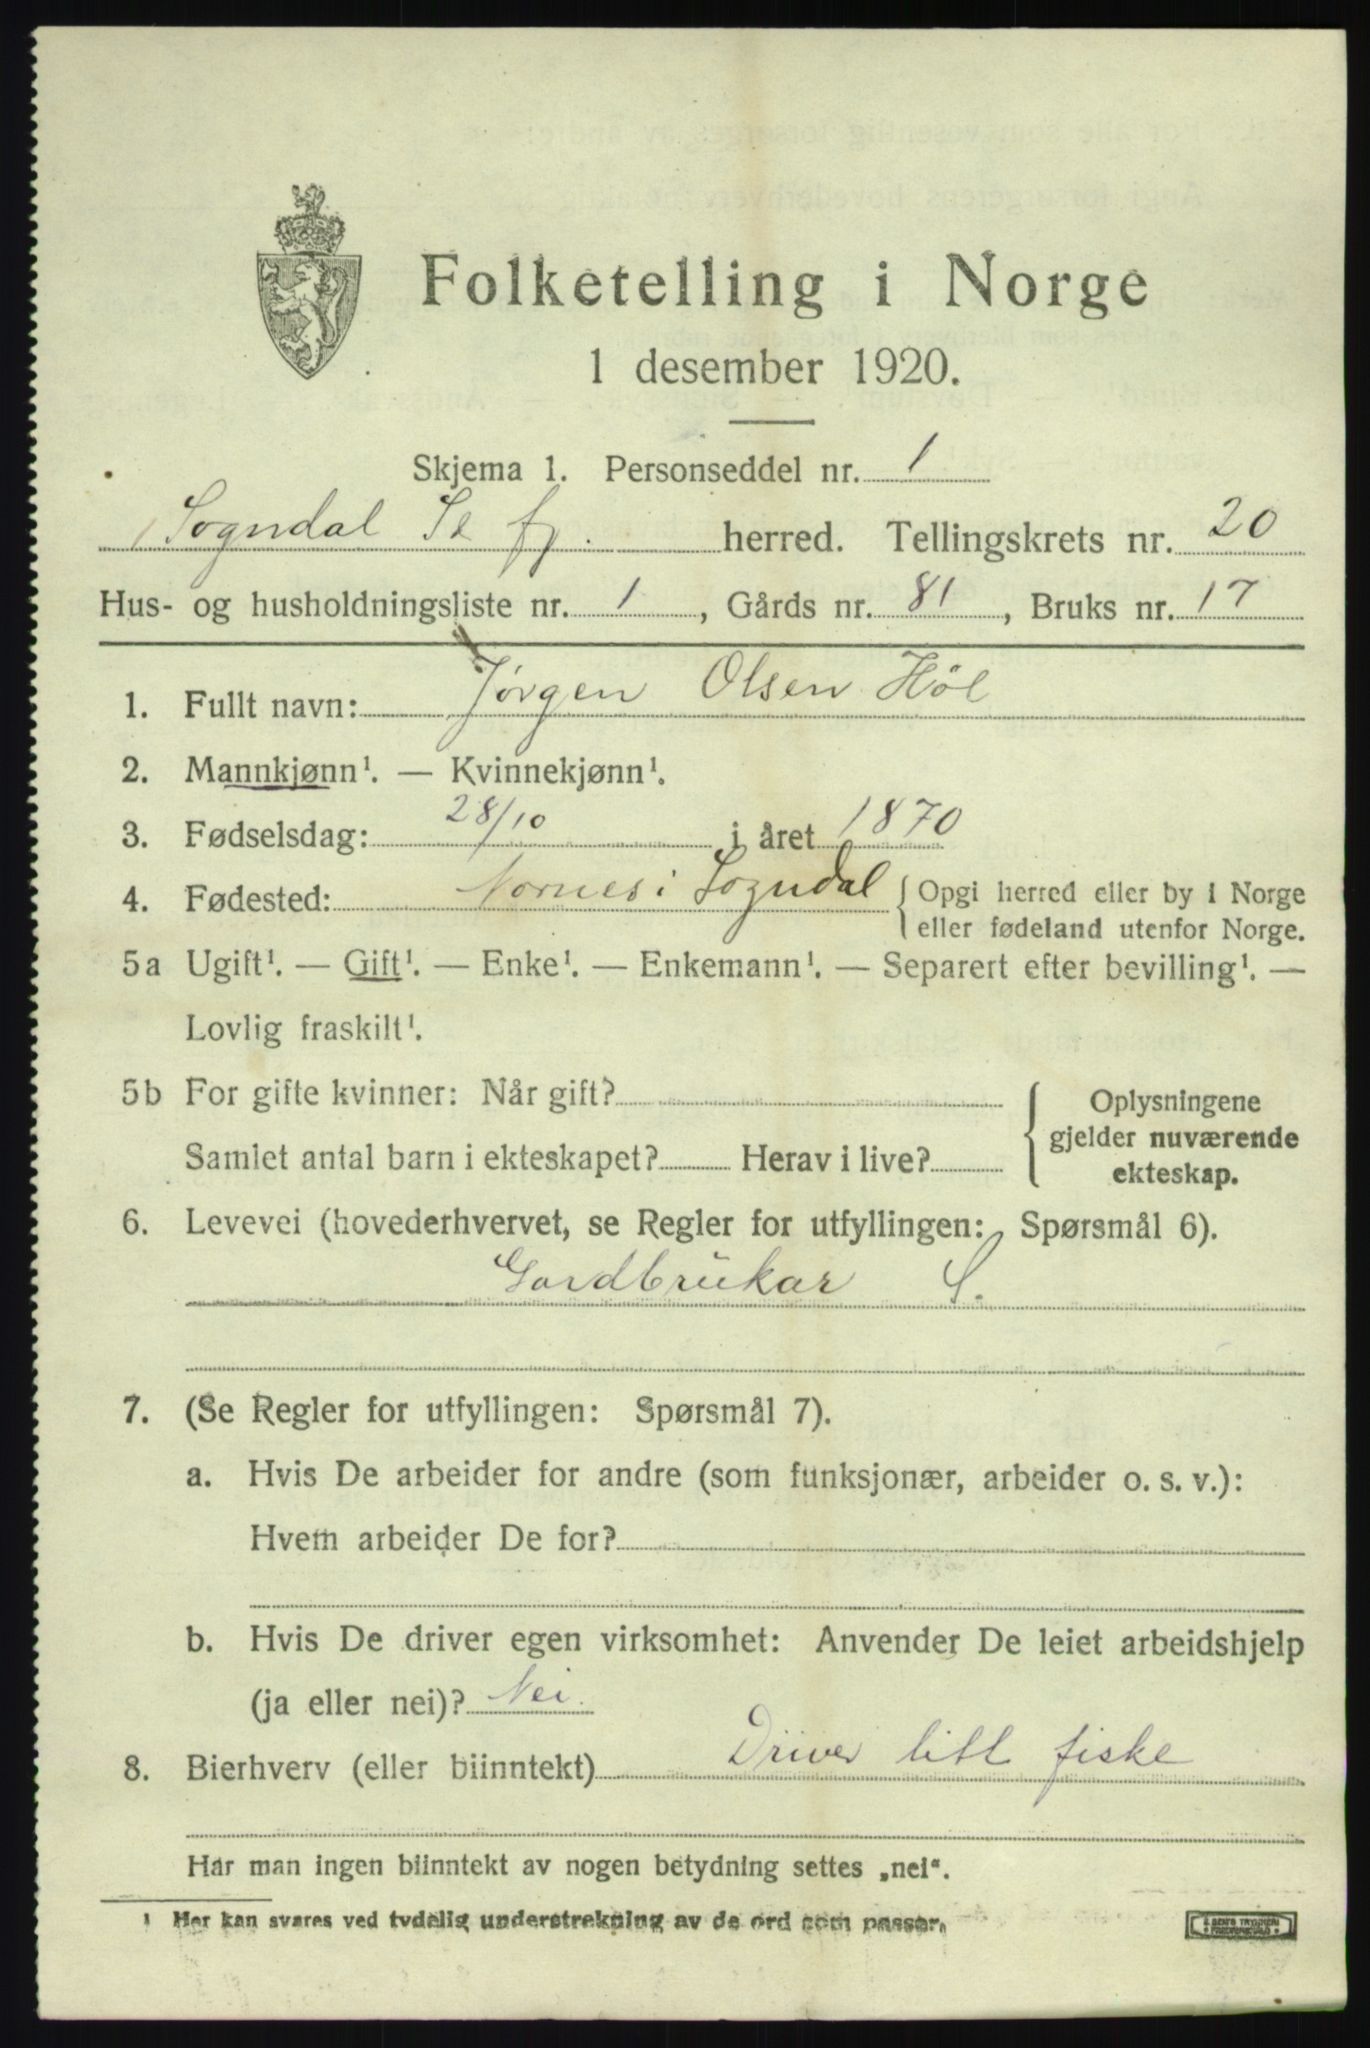 Folketelling i Norge
1 desember 1920.
Skjema 1. Personseddel nr. 1
Sogndal S. & fj. herred. Tellingskrets nr. 20
Hus- og husholdningsliste nr. 1, Gårds nr. 81, Bruks nr. 17
1. Fullt navn: Jørgen Olsen Høl
2. Mannkjønn¹. — Kvinnekjønn¹.
3. Fødselsdag: 28/10 i året 1870
4. Fødested: Nornes i Sogndal { Opgi herred eller by i Norge
eller fødeland utenfor Norge.
5a Ugift¹. — Gift¹. — Enke¹. — Enkemann¹. — Separert efter bevilling¹. —
Lovlig fraskilt¹.
5b For gifte kvinner: Når gift?
Samlet antal barn i ekteskapet? Herav i live?
Oplysningene
gjelder nuværende
ekteskap.
6. Levevei (hovederhvervet, se Regler for utfyllingen: Spørsmål 6).
Gardbrukar S.
7. (Se Regler for utfyllingen: Spørsmål 7).
a. Hvis De arbeider for andre (som funksjonær, arbeider o. s. v.):
Hvem arbeider De for?
b. Hvis De driver egen virksomhet: Anvender De leiet arbeidshjelp
(ja eller nei)? Nei.
8. Bierhverv (eller biinntekt) Driver litt fiske
Har man ingen biinntekt av nogen betydning settes „nei“.
¹ Her kan svares ved tydelig understrekning av de ord som passer.